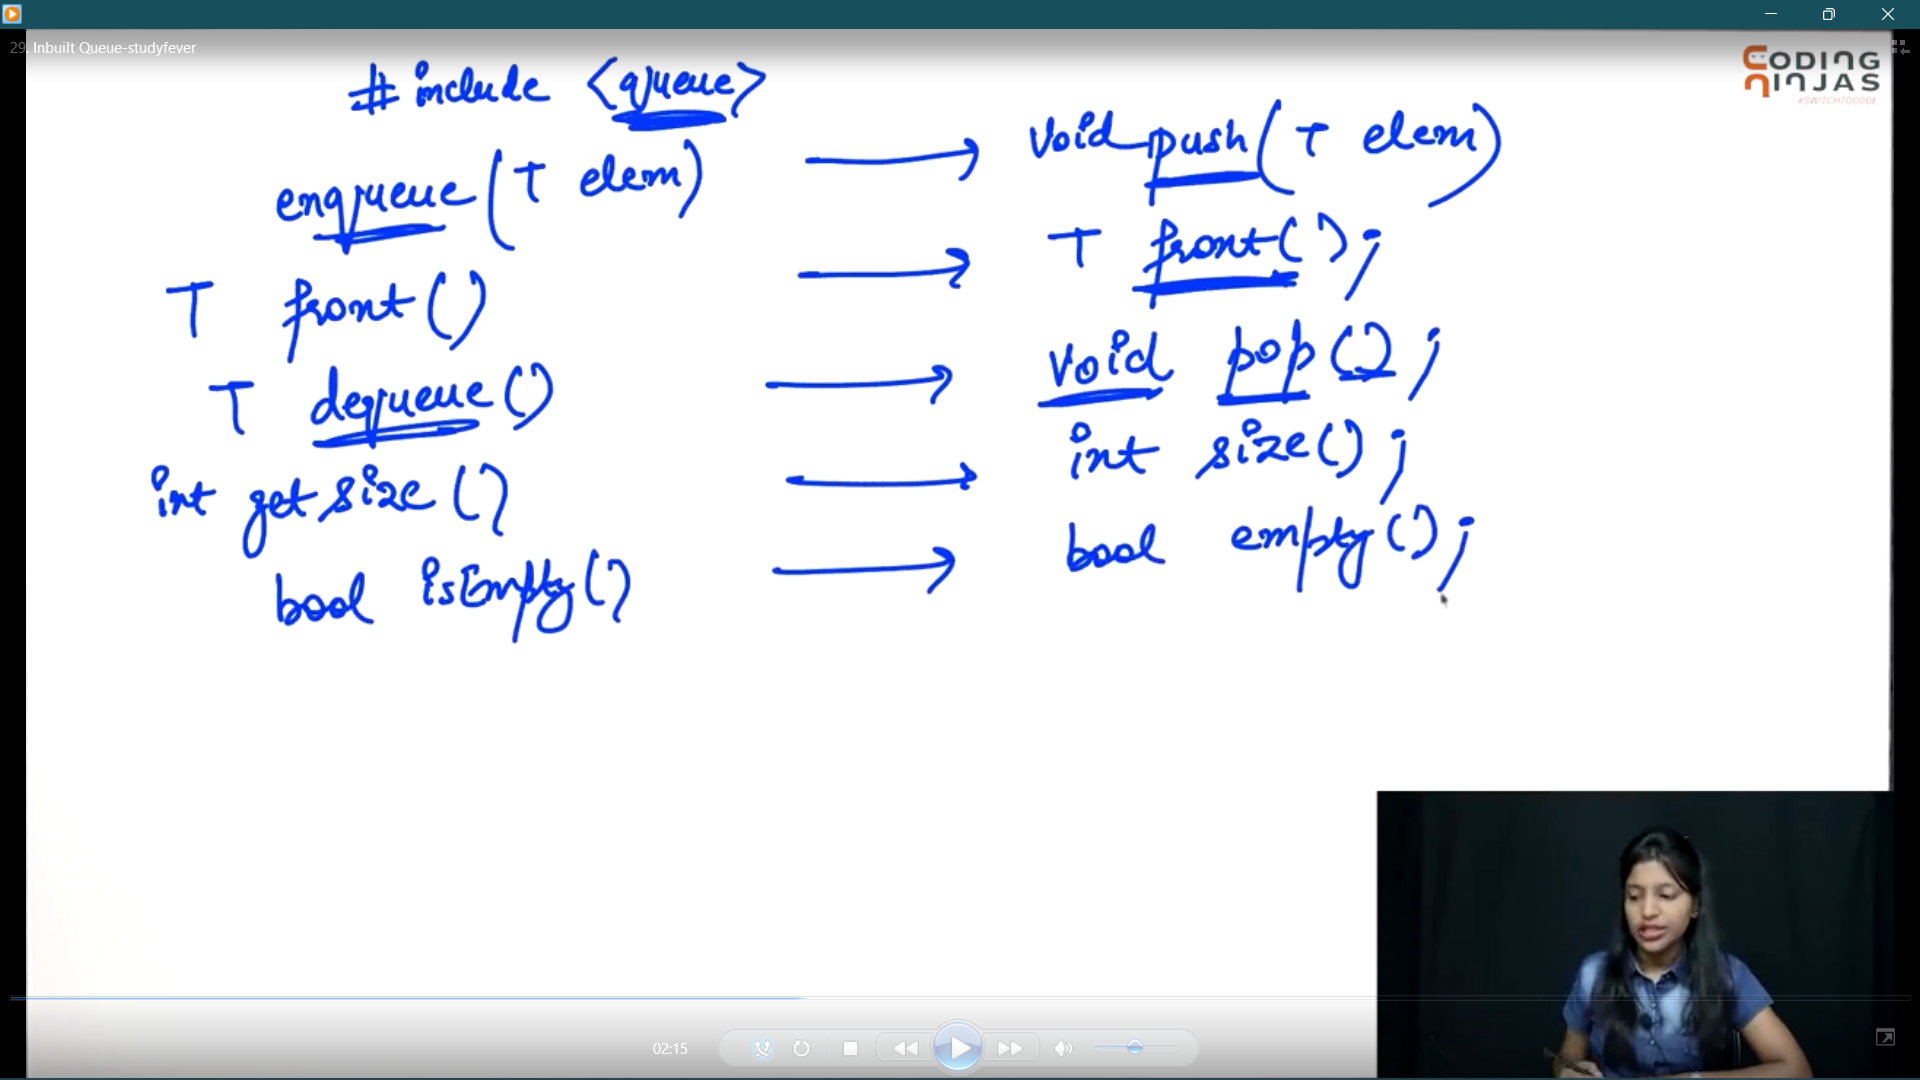 29. Inbuilt Queue-studyfever
CODING
NINJAS
#SWITCHTOCODE
# include <queue>
enqueue (T elem) → void push (T elem)
T front () → T front();
T dequeue () → void pop ();
int getsize () → int size();
bool isEmpty () → bool empty();
02:15